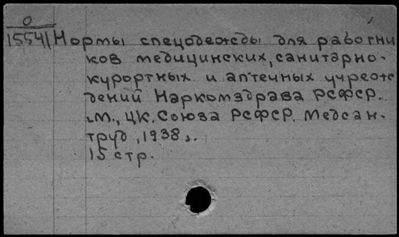 0
15541 Нормы спецодежды для работни
ков медицинских, санитарно-
курортных и аптечных учреж
дений Наркомздрава РСФСР.
М., ЦК. Союза РСФСР. Медсан-
труд, 1938.
15 стр.